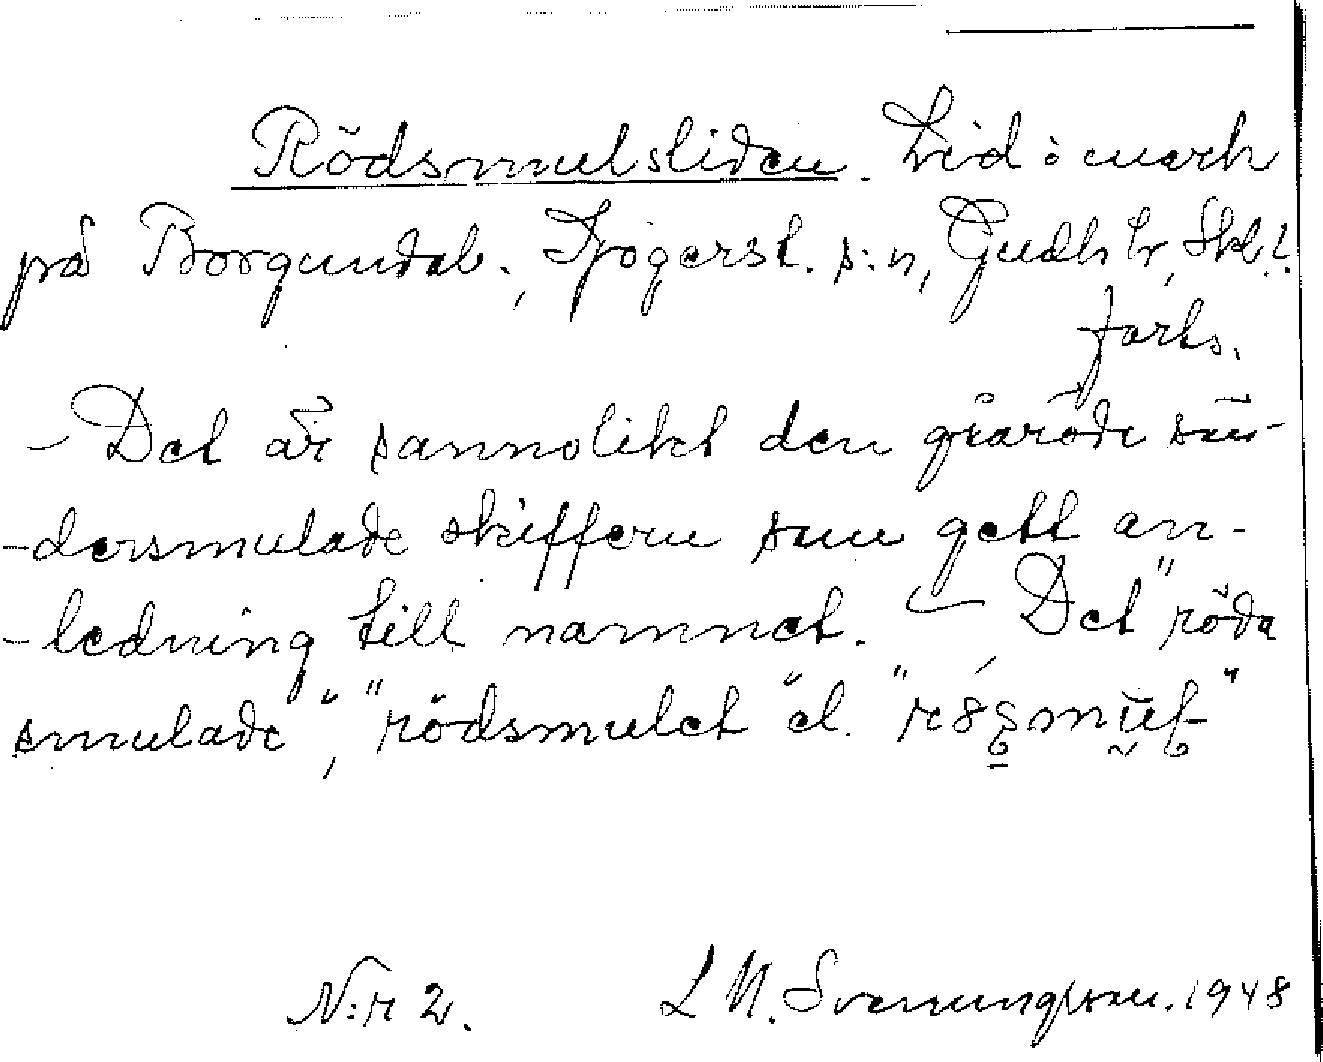 Rödsmulsliden. Lid i mark
på Borgundab., Sjogerst. s:n, Gudh. hr, Skl.
forts.
- Det är sannolikt den gråröde sön-
-dersmulade skiffern som gett an-
-ledning till namnet. - Det "röda
smulade", "rödsmulet" el.
N:r 2. L M. Svenungsson. 1948